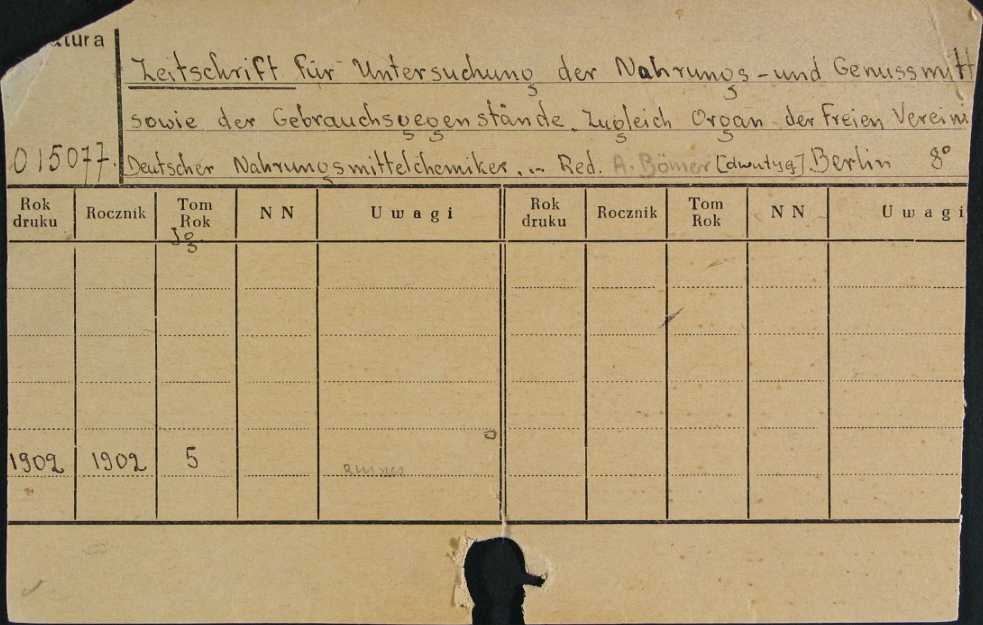 tura
Zeitschrift für Untersuchung der Nahrungs-und Genussmitt
sowie der Gebrauchsgegenstände. Zugleich Organ der Freien Vereini
015077. Deutscher Nahrungsmittelchemiker. .. Red. A. Bömer [dwutyg.] Berlin 8°
Rok druku Rocznik Tom Rok NN Uwagi Rok druku Rocznik Tom Rok NN Uwagi
Jg.
1902 1902 5